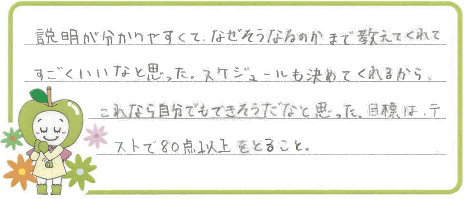 説明が分かりやすくて、なぜそうなるのかまで教えてくれて
すごくいいなと思った。スケジュールも決めてくれるから、
これなら自分でもできそうだなと思った。目標は、テ
ストで80点以上をとること。